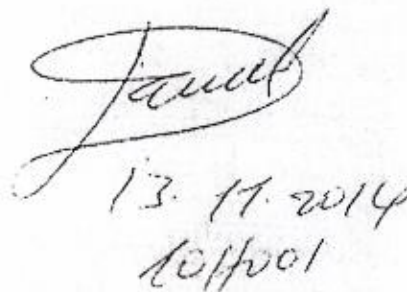 13.11.2014
10H001